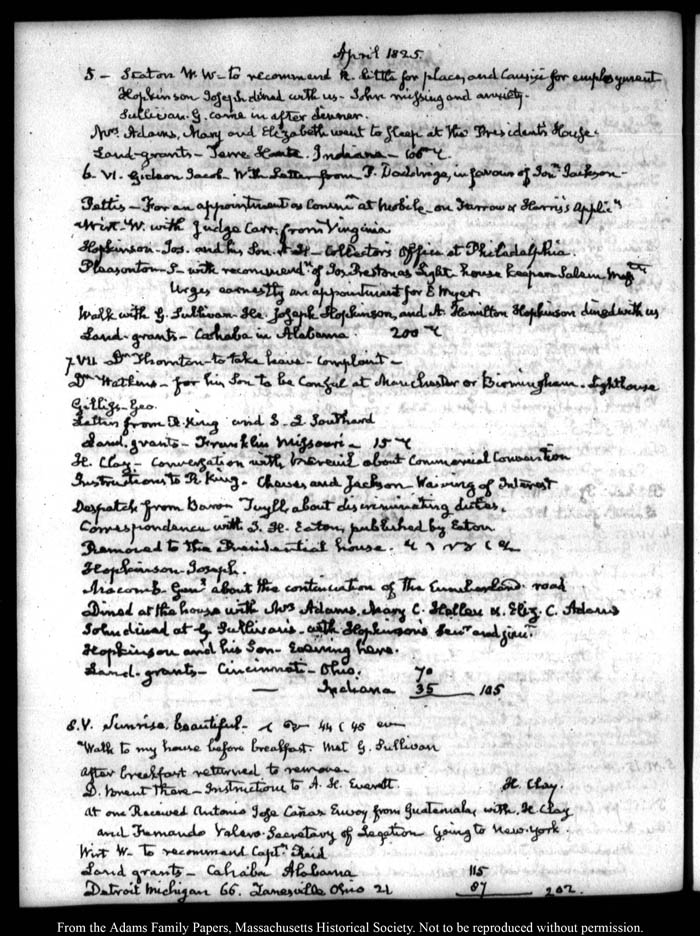 April 1825.
5 – Seaton W. W – to recommend R. Little for place, and for employment
Hopkinson Joseph dined with us – John missing and anxiety.
Sullivan. G. came in after dinner.
Mrs. Adams, Mary and Elizabeth went to sleep at the President's House.
Land-grants – Terre Haute. Indiana –
6. VI. Gideon Jacob – With Letter from P. Doddridge, in favour of Jackson –
Pettis – For an appointment as at Mobile – on Farrow & Harris's
Wirt. W. with Judge Carr, from Virginia
Hopkinson – Jos. and his Son. – Collector's Office at Philadelphia.
Pleasonton – S – with recommendn. of Jos. Preston as Light house keeper Salem
Urges earnestly an appointment for E Myer.
Walk with G. Sullivan – He. Joseph Hopkinson, and A. Hamilton Hopkinson dined with us
Land-grants – Cahaba in Alabama. 200
7. VII. Dr. Thornton – to take leave – Complaint –
Dr. Watkins – for his Son to be Consul at Manchester or Birmingham. Lighthouse
Gillis – Geo.
Letters from R. King and S. L Southard
Land-grants – Franklin Missouri – 15
H. Clay – Conversation with about Commercial Convention
Instructions to R King. and Jackson – Waiving of Interest
Despatch from Baron Tuyll, about discriminating duties.
Correspondence with J. H. Eaton, published by Eaton
Removed to the Presidential house.
Hopkinson Joseph.
Macomb – Genl. about the continuation of the Cumberland road
Dined at the house with Mrs Adams, Mary C. Hellen & Eliz. C. Adams
John dined at G Sullivan's – with Hopkinson's Senr. and junr.
Hopkinson and his Son – Evening here.
Land-grants – Cincinnati – Ohio. 70
— Indiana 35 105
8. V. Sunrise. beautiful – 44 45
Walk to my house before breakfast. Met G. Sullivan
After breakfast returned to remove
D. Brent There – Instructions to A. H. Everett. H. Clay.
At one Received Antonio Jose Cañas Envoy from Guatemala, with H Clay
and Fernando Valero Secretary of Legation Going to New-York.
Wirt W – to recommend Captn.
Land grants – Cahaba Alabama 115
Detroit Michigan 66. Zanesville Ohio 21 87 202.
From the Adams Family Papers, Massachusetts Historical Society. Not to be reproduced without permission.